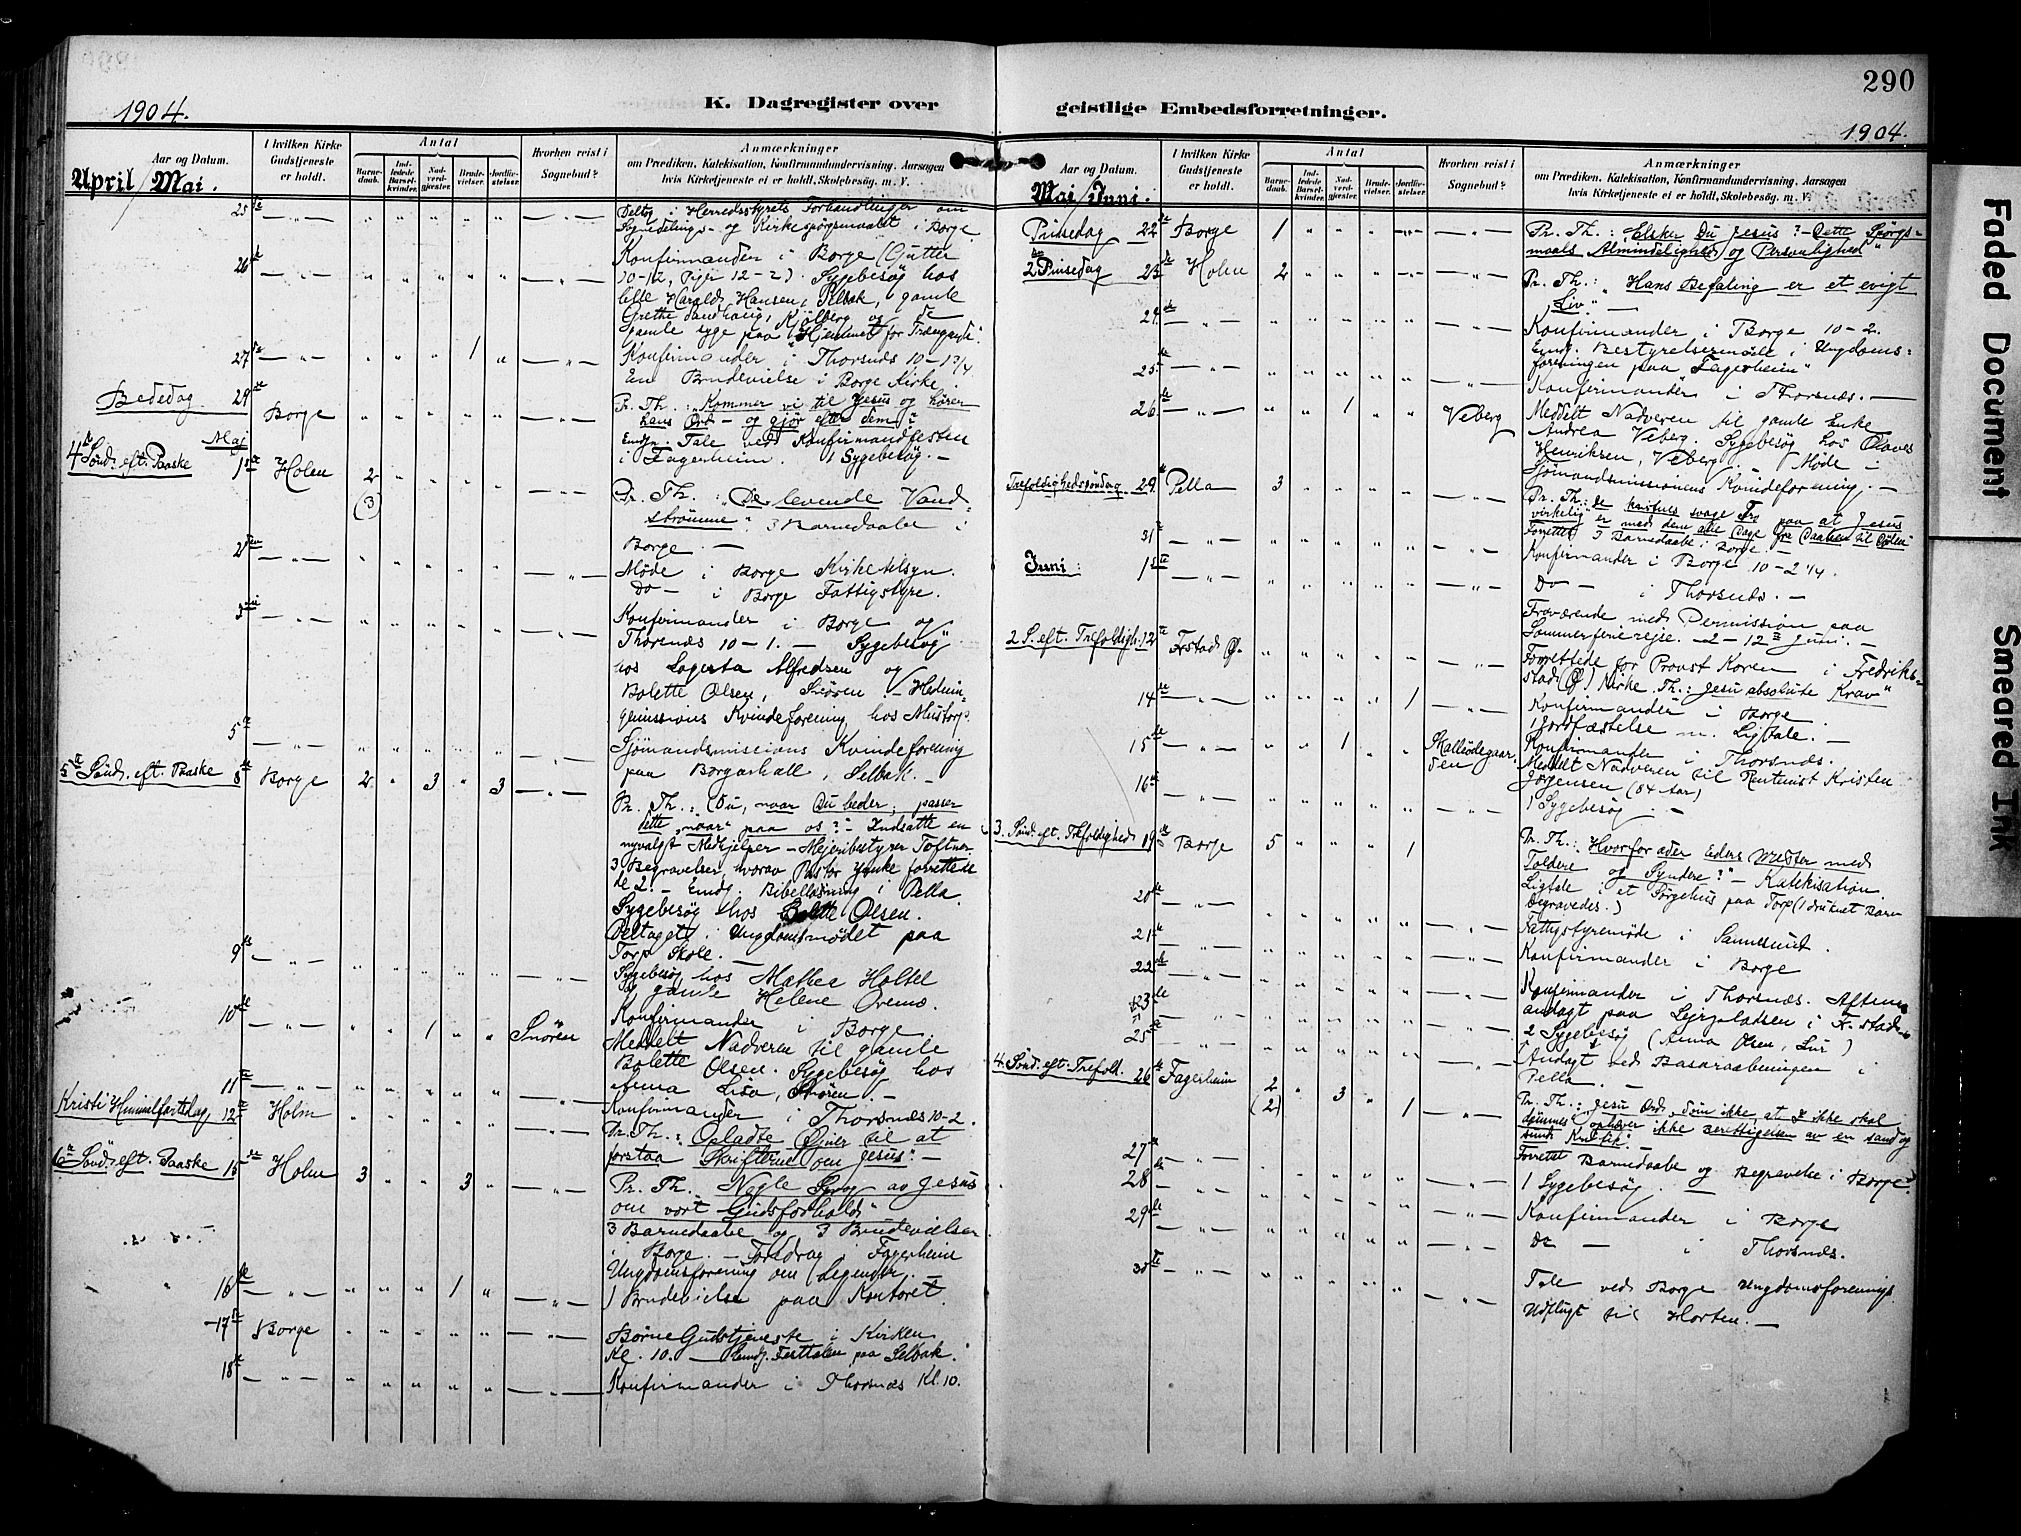 290
1904.
K. Dagregister over
April / Mai.
Aar og Datum.
I hvilken Kirke Gudstjeneste er holdt.
Antal
Barnedaab.
Indledede Barselkvinder.
Nadvergjester.
Brudevielser.
Jordfæstelser.
Hvorhen reist i Sognebud?
Anmærkninger
om Prædiken, Katekisation, Konfirmandundervisning, Aarsagen
hvis Kirketjeneste ei er holdt, Skolebesøg. m. V.
25de Deltog i Herredsstyrets Forhandlinger om
og Kirkespørgsmaalet i Borge
26de Konfirmander i Borge (Gutter
10-12, Piger 12-2). Sygebesøg hos
lille Harald Hansen, Selbak, gamle
Grethe Sandhaug, Kjølberg og de
gamle syge paa "Hjemmet for Trængende".
27de 1 Konfirmander i Thorsnæs 10-1 3/4
En Brudevielse i Borge Kirke.
Bededag 29de Borge Pr. Th.: "Kommer vi til Jesus og hører
hans Ord - og gjør efter dem?"
Emdg. Tale ved Konfirmandfesten
i Fagerheim. 1 Sygebesøg. -
Maj
4de Sønd. eft. Paaske 1ste Holm 2 (3)
Pr. Th.: "De levende Vand-
strømme" 3 Barnedaabe i
Borge. -
2den Møde i Borge Kirketilsyn.
Do - i Borge Fattigstyre.
3die Konfirmander i Borge og
Thorsnæs 10-1. - Sygebesøg
hos Lagerta Alfredsen og
Bolette Olsen, Snøren. - Hedning-
emissions Kvindeforening hos Mustorp.
5te Sjømandsmissions Kvindeforening
paa Borgarhall, Selbak. -
5te Sønd. eft. Paaske 8de Borge 2 3 3
Pr. Th.: "Du, naar Du beder, passer
dette "naar" paa os?" - Indsatte en
nyvalgt Medhjelper - Mejeribestyrer Toftner.
3 Begravelser, hvorav Pastor Hanke forrettede
de 2. - Emdg. Bibellæsning i Pella.
Sygebesøg hos Bolette Olsen.
Deltaget i Ungdomsmødet paa
Torp Skole. -
9de Sygebesøg hos Mathea Holtet
og gamle Helene
10de 1 Snøren
Konfirmander i Borge.
Meddelt Nadveren til gamle
Bolette Olsen. Sygebesøg hos
Anna Lisa, Snøren. -
11te Konfirmander i Thorsnæs 10-2.
Kristi Himmelfartsdag 12te Holm Pr. Th.: "Opladte Øiner til at
forstaa Skrifterne om Jesus". -
6te Sønd. eft. Paaske 15de Holm 3 3
Pr. Th. Nogle Sprog av Jesus
om vort Gudsforhold"
3 Barnedaabe og 3 Brudevielser
i Borge. - Foredrag i Fagerheim
Ungdomsforening om Legender. -
16de 1 1 Brudevielse paa Kontoret
17de Borge Børne Gudstjeneste i Kirken
Kl. 10. - Emdg. Festtalen paa Selbak.
18de Konfirmander i Thorsnæs Kl. 10.
geistlige Embedsforretninger.
1904.
Mai / Juni.
Aar og Datum.
I hvilken Kirke Gudstjeneste er holdt.
Antal
Barnedaab.
Indledede Barselkvinder.
Nadvergjester.
Brudevielser.
Jordfæstelser.
Hvorhen reist i Sognebud?
Anmærkninger
om Prædiken, Katekisation, Konfirmandundervisning, Aarsagen
hvis Kirketjeneste ei er holdt, Skolebesøg. m. V.
Pinsedag 22de Borge 1 Pr. Th.: "Elsker Du Jesus? - Dette Spørgs-
maals Almindelighed og Personlighed"
2den Pinsedag 23de Holm 2 Pr. Th.: "Hans Befaling er et evigt
Liv" -
24de Konfirmander i Borge 10-2.
Emdg. Bestyrelsesmøde i Ungdoms-
foreningen paa "Fagerheim"
25de Konfirmander i Thorsnæs. -
26de 1 Veberg Meddelt Nadveren til gamle Enke
Andrea Veberg. Sygebesøg hos Olaves
Henriksen, Veberg. - Møde i
Sjømandsmissionens Kvindeforening. -
Trefoldighedssøndag 29de Pella 3 Pr. Th.: de kristnes svage Tro paa at Jesus
virkelig er med dem alle Dage fra Daaben til Døden"
Forrettet 3 Barnedaabe i Borge. -
31te Konfirmander i Borge 10-2 1/4.
Juni: 1ste Do - i Thorsnæs. -
Fraværende med Permission paa
Sommerferierejse. 2-12te Juni. -
2 S. eft. Trefoldigh. 12te Frstad Ø. Forrettede for Provst Koren i Fredriks-
stad (Ø) Kirke Th.: Jesu absolute Krav"
14de 1 Konfirmander i Borge.
1 Jordfæstelse m. Ligtale. -
15de 1 Skallødegaar-
den
Konfirmander i Thorsnæs.
Meddelt Nadveren til Rentenist Kristen
Jørgensen (84 Aar)
16de 1 Sygebesøg. -
3. Sønd. eft. Trefoldighed 19de Borge 5 1
Pr. Th.: Hvorfor æder Eders Mester med
Toldere og Syndere?" - Katekisation
Ligtale i et Sørgehus paa Torp (1 druknet Barn
begravedes.)
20de Fattigstyremøde i Sannesund.
21de Konfirmander i Borge
22de Konfirmander i Thorsnæs. Aften-
andagt paa Lejrpladsen i Fr.stad -
23de 2 Sygebesøg (Anna Olsen, Lur)
25de Andagt ved Basaraabningen i
Pella. -
4. Sønd. eft. Trefold. 26de Fagerheim 2 (2) 3 1
Pr. Th.: Jesu Ord "Døm ikke, at I ikke skal
dømmes" ophæver ikke berettigelsen av en sand og
sund Kritik: -
Forrettet Barnedaabe og Begravelse i Borge.
27de 1 Sygebesøg. -
28de Konfirmander i Borge
29de Do - i Thorsnæs.
30te Tale ved Borge Ungdomsforenings
Udflugt til Horten. -
Faded Document
Smeared Ink